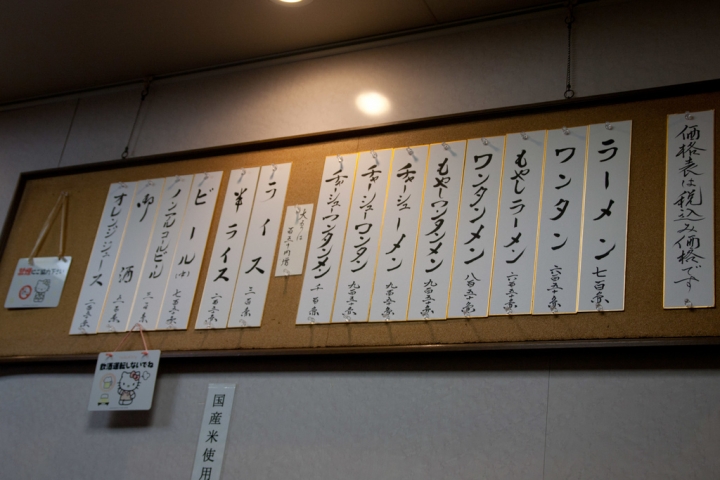 価格表は税込み価格です
ラーメン 七百円
ワンタン 六百五十円
もやしラーメン
ワンタンメン 八百五十円
もやしワンタンメン 九百五十円
チャーシューメン 九百五十円
チャーシューワンタン 九百五十円
チャーシューワンタンメン
大盛は
百五十円増
ライス 三百円
半ライス
ビール(中)
ノンアルコールビール
御酒
オレンジジュース
飲酒運転しないでね
国産米使用